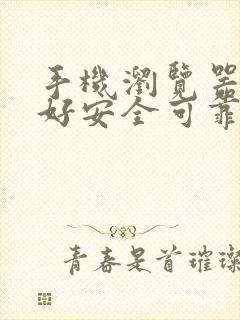 手機瀏覽器
好安全可靠
青春是首璀璨